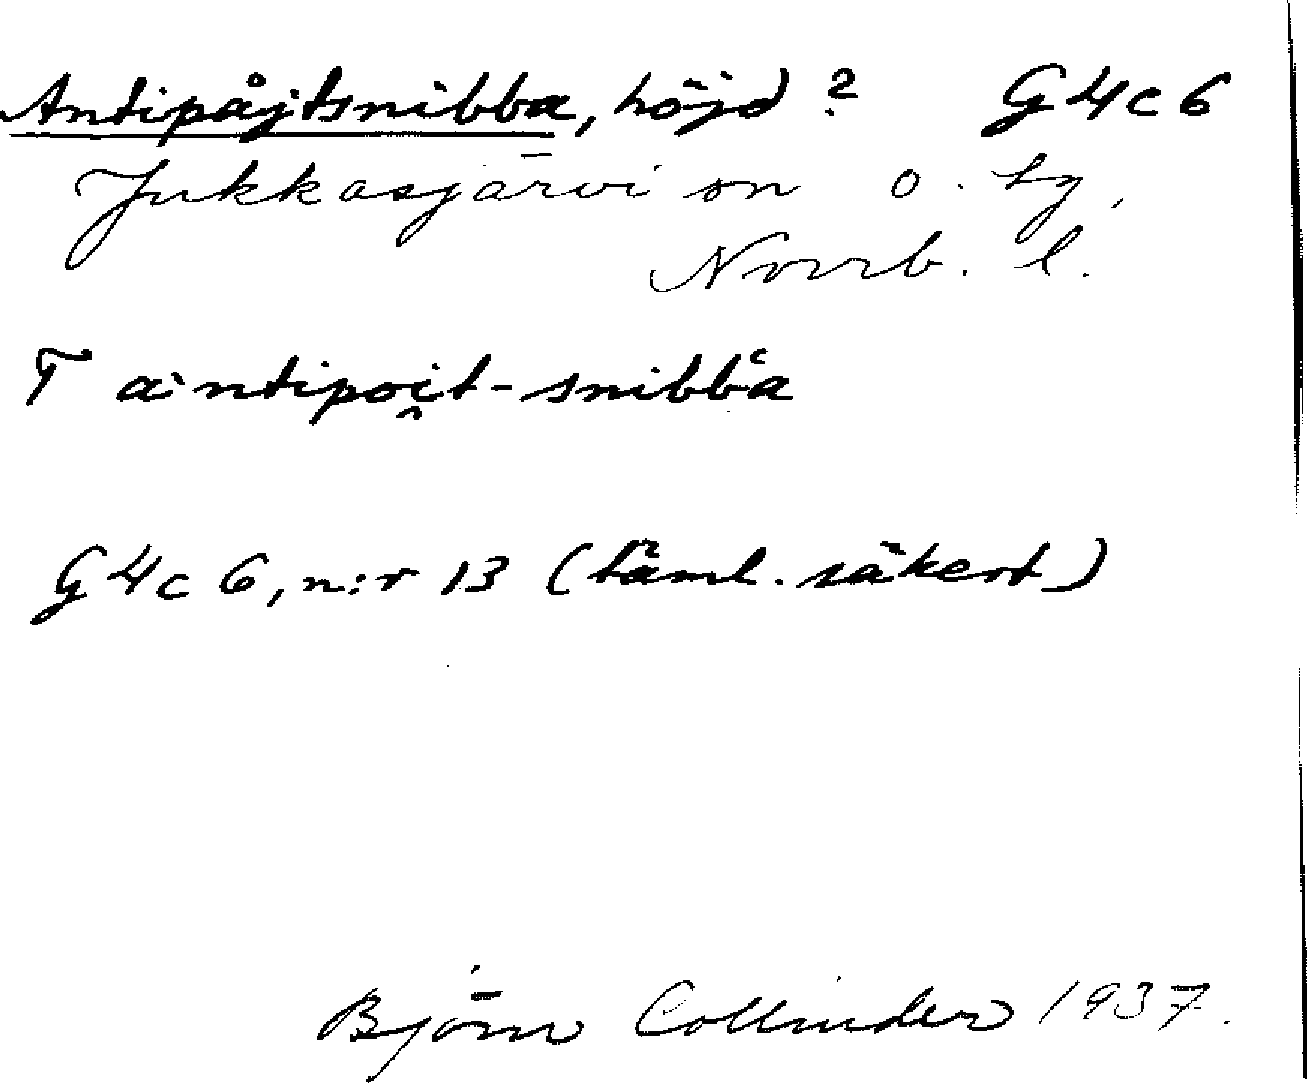 Antipåjtsnibba, höjd? G4c6
Jukkasjärvi sn o. tg,
Norrb. l.
T a`ntipoi̯t-snibba͑
G4c6, n:r 13 (täml. säkert)
Björn Collinder 1937.